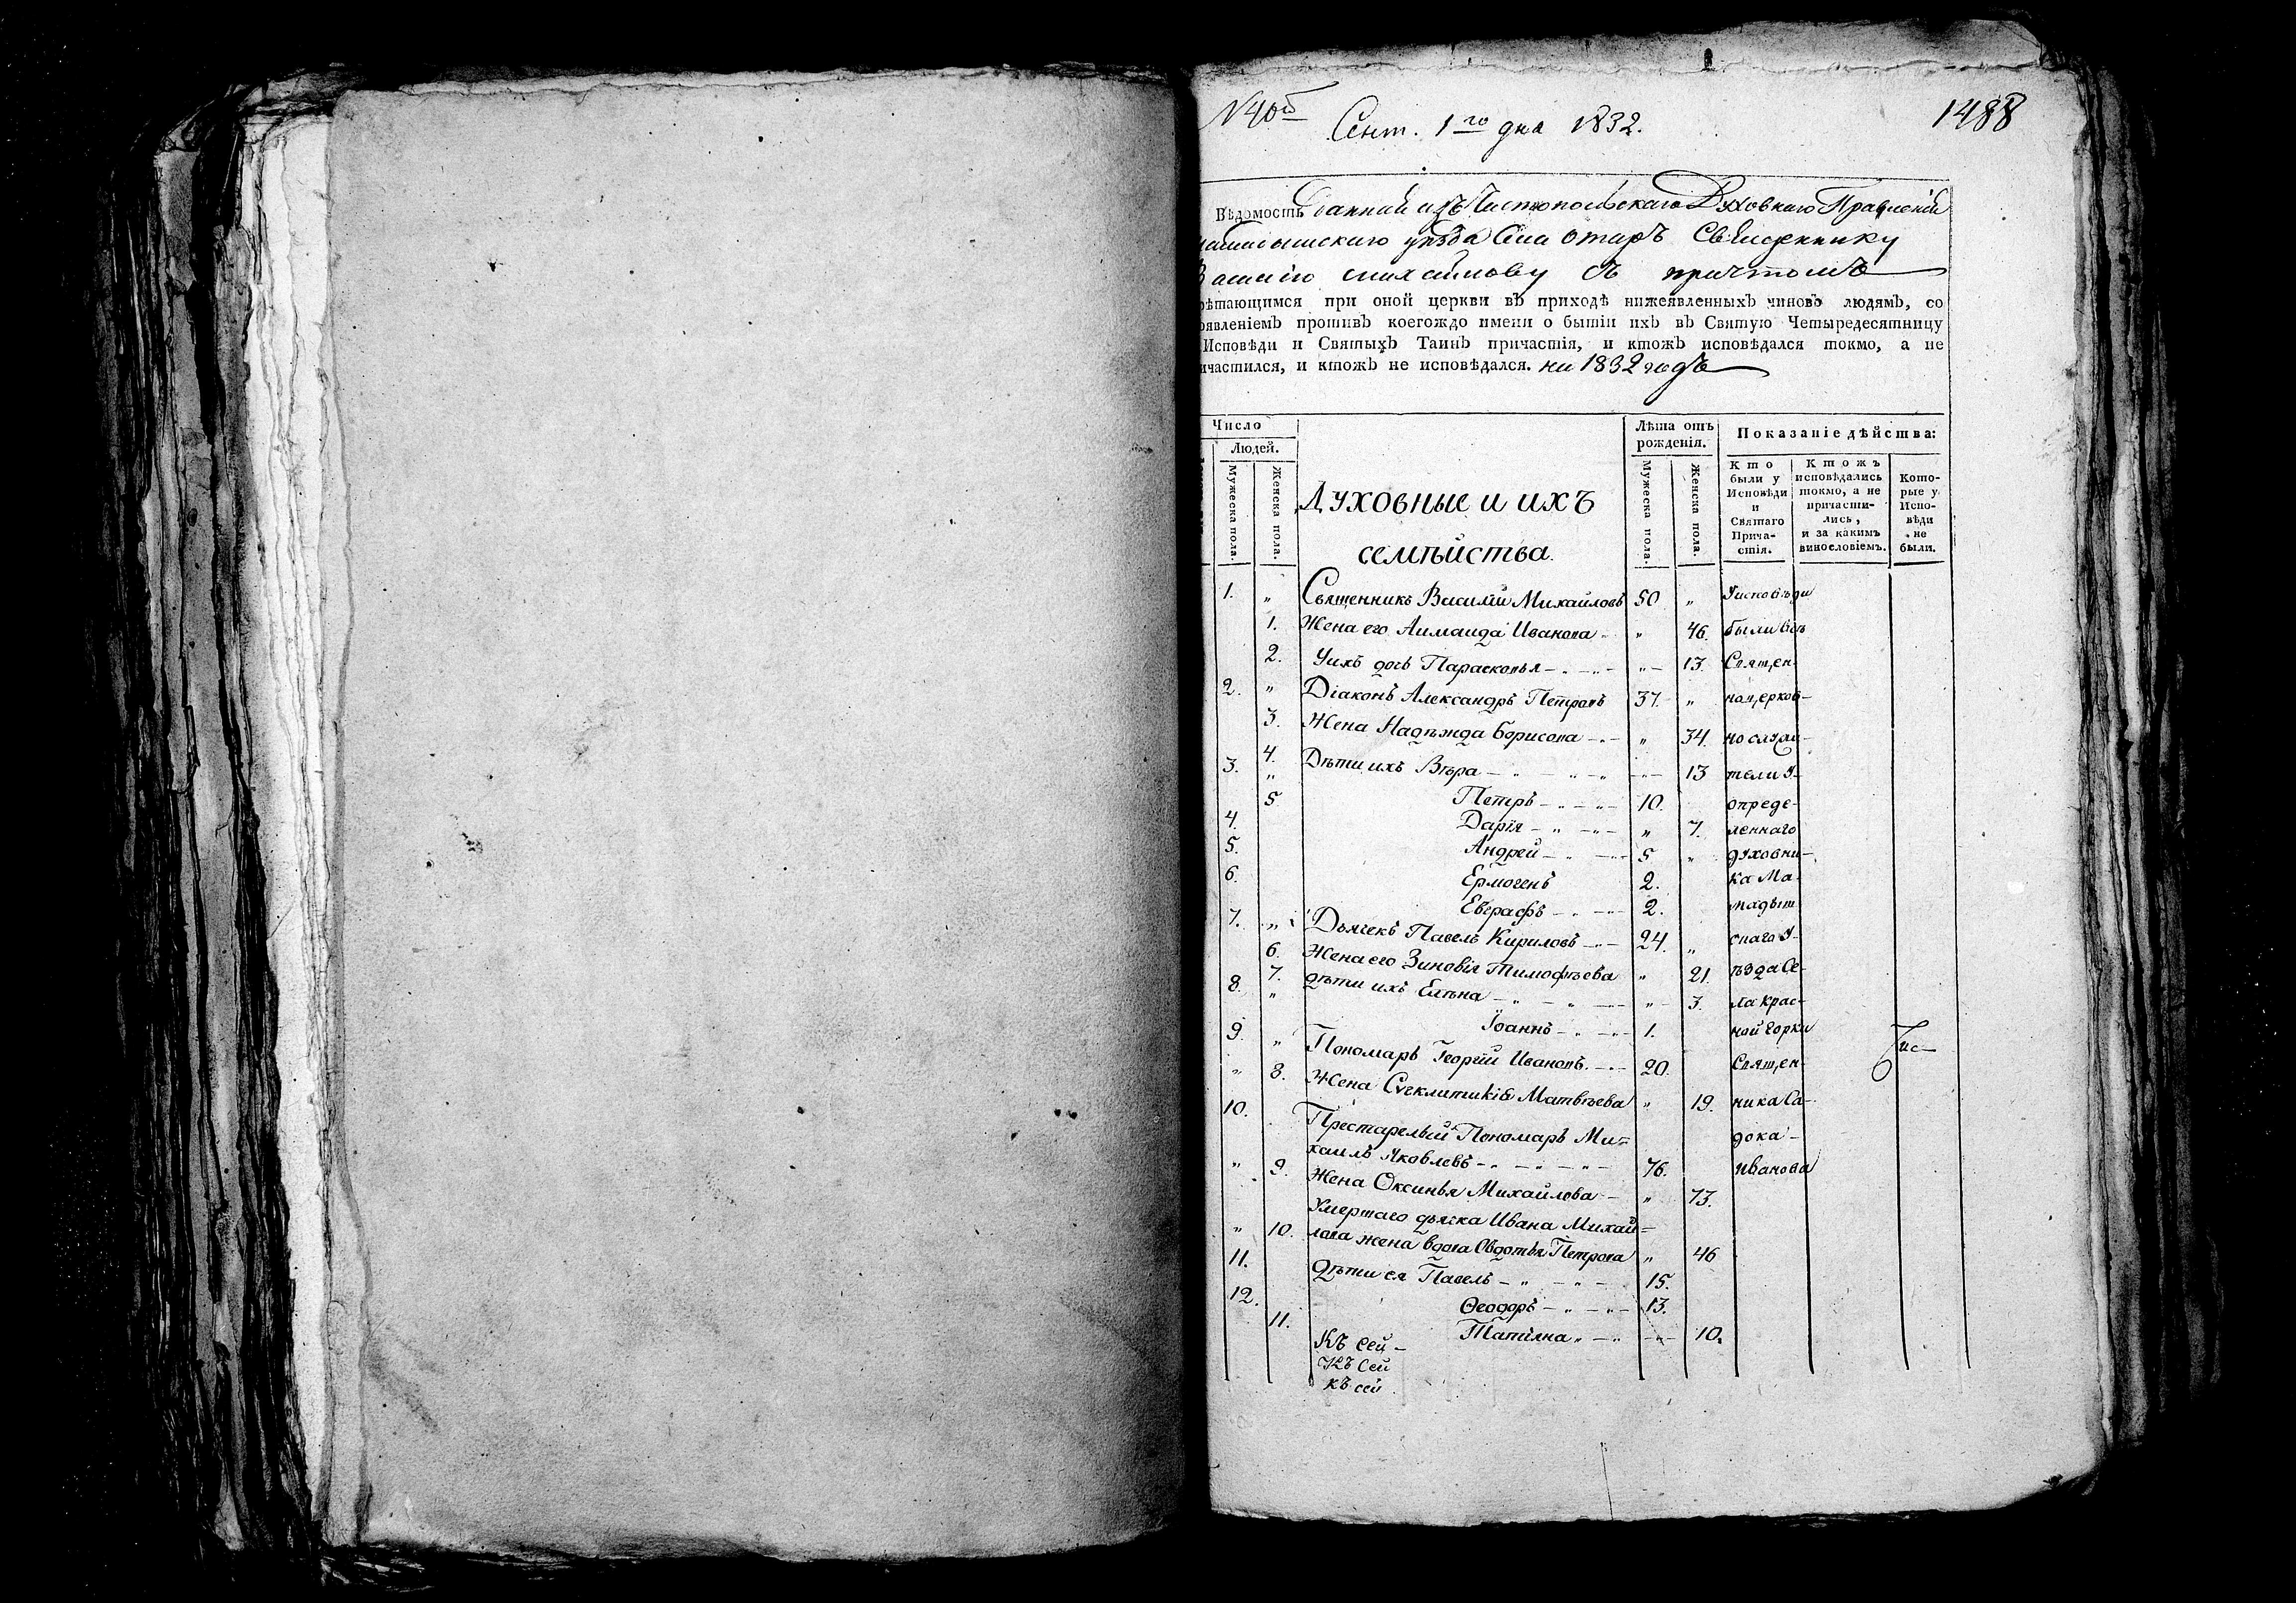 N 40й
Сент. 1го дня 1832.
1488
Вѣдомость Данная изъ Чистопольскаго Духовнаго Правленія
уѣзда Села Отаръ Священнику
Михайлову съ причтомъ
рѣтающимся при оной церкви въ приходѣ нижеявленныхъ чиновъ людямъ, со
оявленіемъ противъ коегождо имени о бытіи ихъ въ Святую Четыредесятницу
Исповѣди и Святыхъ Таинъ причастія, и ктожъ исповѣдался токмо, а не
ичастился, и ктожъ не исповѣдался. на 1832 годъ
Число
Людей.
Мужеска пола.
Женска пола.
Духовные и ихъ
семѣйства.
Лѣта отъ
рожденія.
Мужеска пола.
Женска пола.
Показаніе дѣйства:
Кто
были у
Исповѣди
и
Святаго
Прича-
стія.
Ктожъ
исповѣдались
токмо, а не
причасти-
лись,
и за какимъ
винословіемъ.
Кото-
рые у
Испо-
вѣди
не
были.
1. „ Священникъ Василій Михайловъ 50 „ У исповѣди
1. Жена его Иванова „ 46. были всѣ
2. У ихъ дочь Парасковья „ 13. Священ-
2. „ Діаконъ Александръ Петровъ 37. „ ноцерков-
3. Жена Надѣжда Борисова „ 34. нослужи-
4. Дѣти ихъ Вѣра „ 13 тели у-
3. „ Петръ 10. опреде-
5 Дарія „ 7. леннаго
4. Андрей 5 „ духовни-
5. Ермогенъ 2. ка Ма-
6. Евграфъ 2. мадыш
7. „ Дьячекъ Павелъ Кириловъ 24. „ скаго у-
6. Жена его Зиновія Тимофѣева „ 21. ѣзда Се-
7. дѣти ихъ Елѣна „ 3. ла Крас-
8. „ Іоаннъ 1. ной Горки
9. „ Пономарь Георгій Ивановъ. 20. Священ-
„ 8. Жена Сѵгклитикія Матвѣева „ 19. ника Са-
10. Престарелый Пономарь Ми= дока-
хаилъ Яковлевъ 76. Иванова
„ 9. Жена Оксинья Михайлова „ 73.
Умершаго дьячка Ивана Михай=
„ 10. лова жена вдова Овдотья Петрова „ 46
11. Дѣти ея Павелъ 15.
12. Ѳеодоръ 13.
11. Татіяна 10.
Къ сей
Къ сей
къ сей